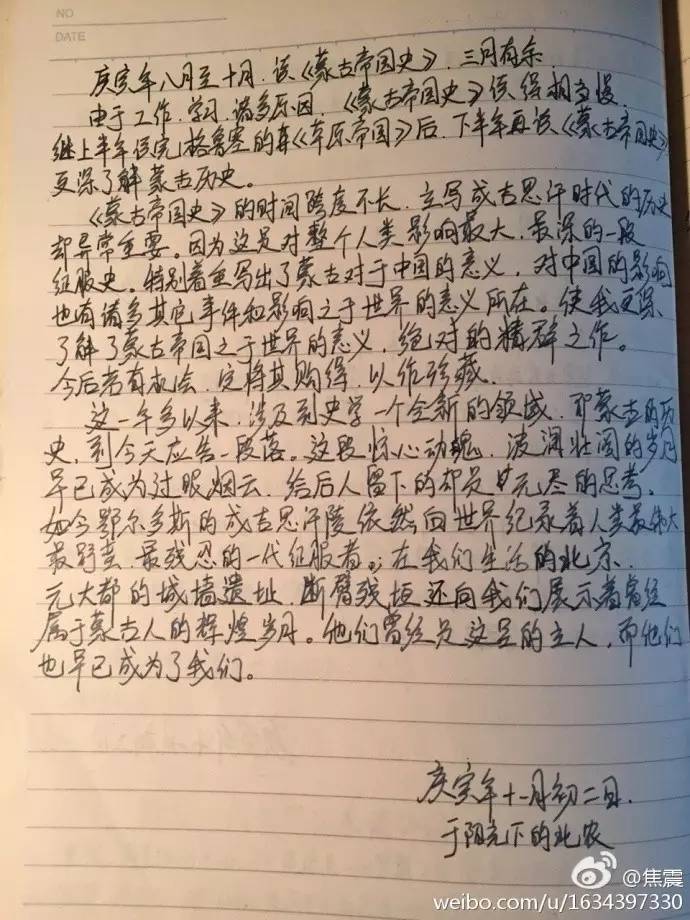 NO
DATE
庚寅年八月至十月.读《蒙古帝国史》.三月有余.
由于工作.学习.诸多原因.《蒙古帝国史》读得相当慢.
继上半年读完格鲁塞的《草原帝国》后.下半年再读《蒙古帝国史》
更深了解蒙古历史。
《蒙古帝国史》的时间跨度不长.主写成吉思汗时代的历史
却异常重要。因为这是对整个人类影响最大.最深的一段
征服史。特别着重写出了蒙古对于中国的意义.对中国的影响
也有诸多其它事件和影响之于世界的意义所在。使我更深
了解了蒙古帝国之于世界的意义.绝对的精群之作。
今后若有机会.定将其购得.以作珍藏.
这一年多以来.涉及到史学一个全新的领域.那蒙古的历
史.到今天应告一段落。这段惊心动魄.波澜壮阔的岁月
早已成为过眼烟云.给后人留下的却是无尽的思考。
如今鄂尔多斯的成吉思汗陵依然向世界纪录着人类最伟大
最野蛮.最残忍的一代征服者。在我们生活的北京.
元大都的城墙遗址.断臂残垣还向我们展示着曾经
属于蒙古人的辉煌岁月。他们曾经是这里的主人.而他们
也早已成为了我们。
庚寅年十一月初二日.
于阳光下的北农
@焦震
weibo.com/u/1634397330